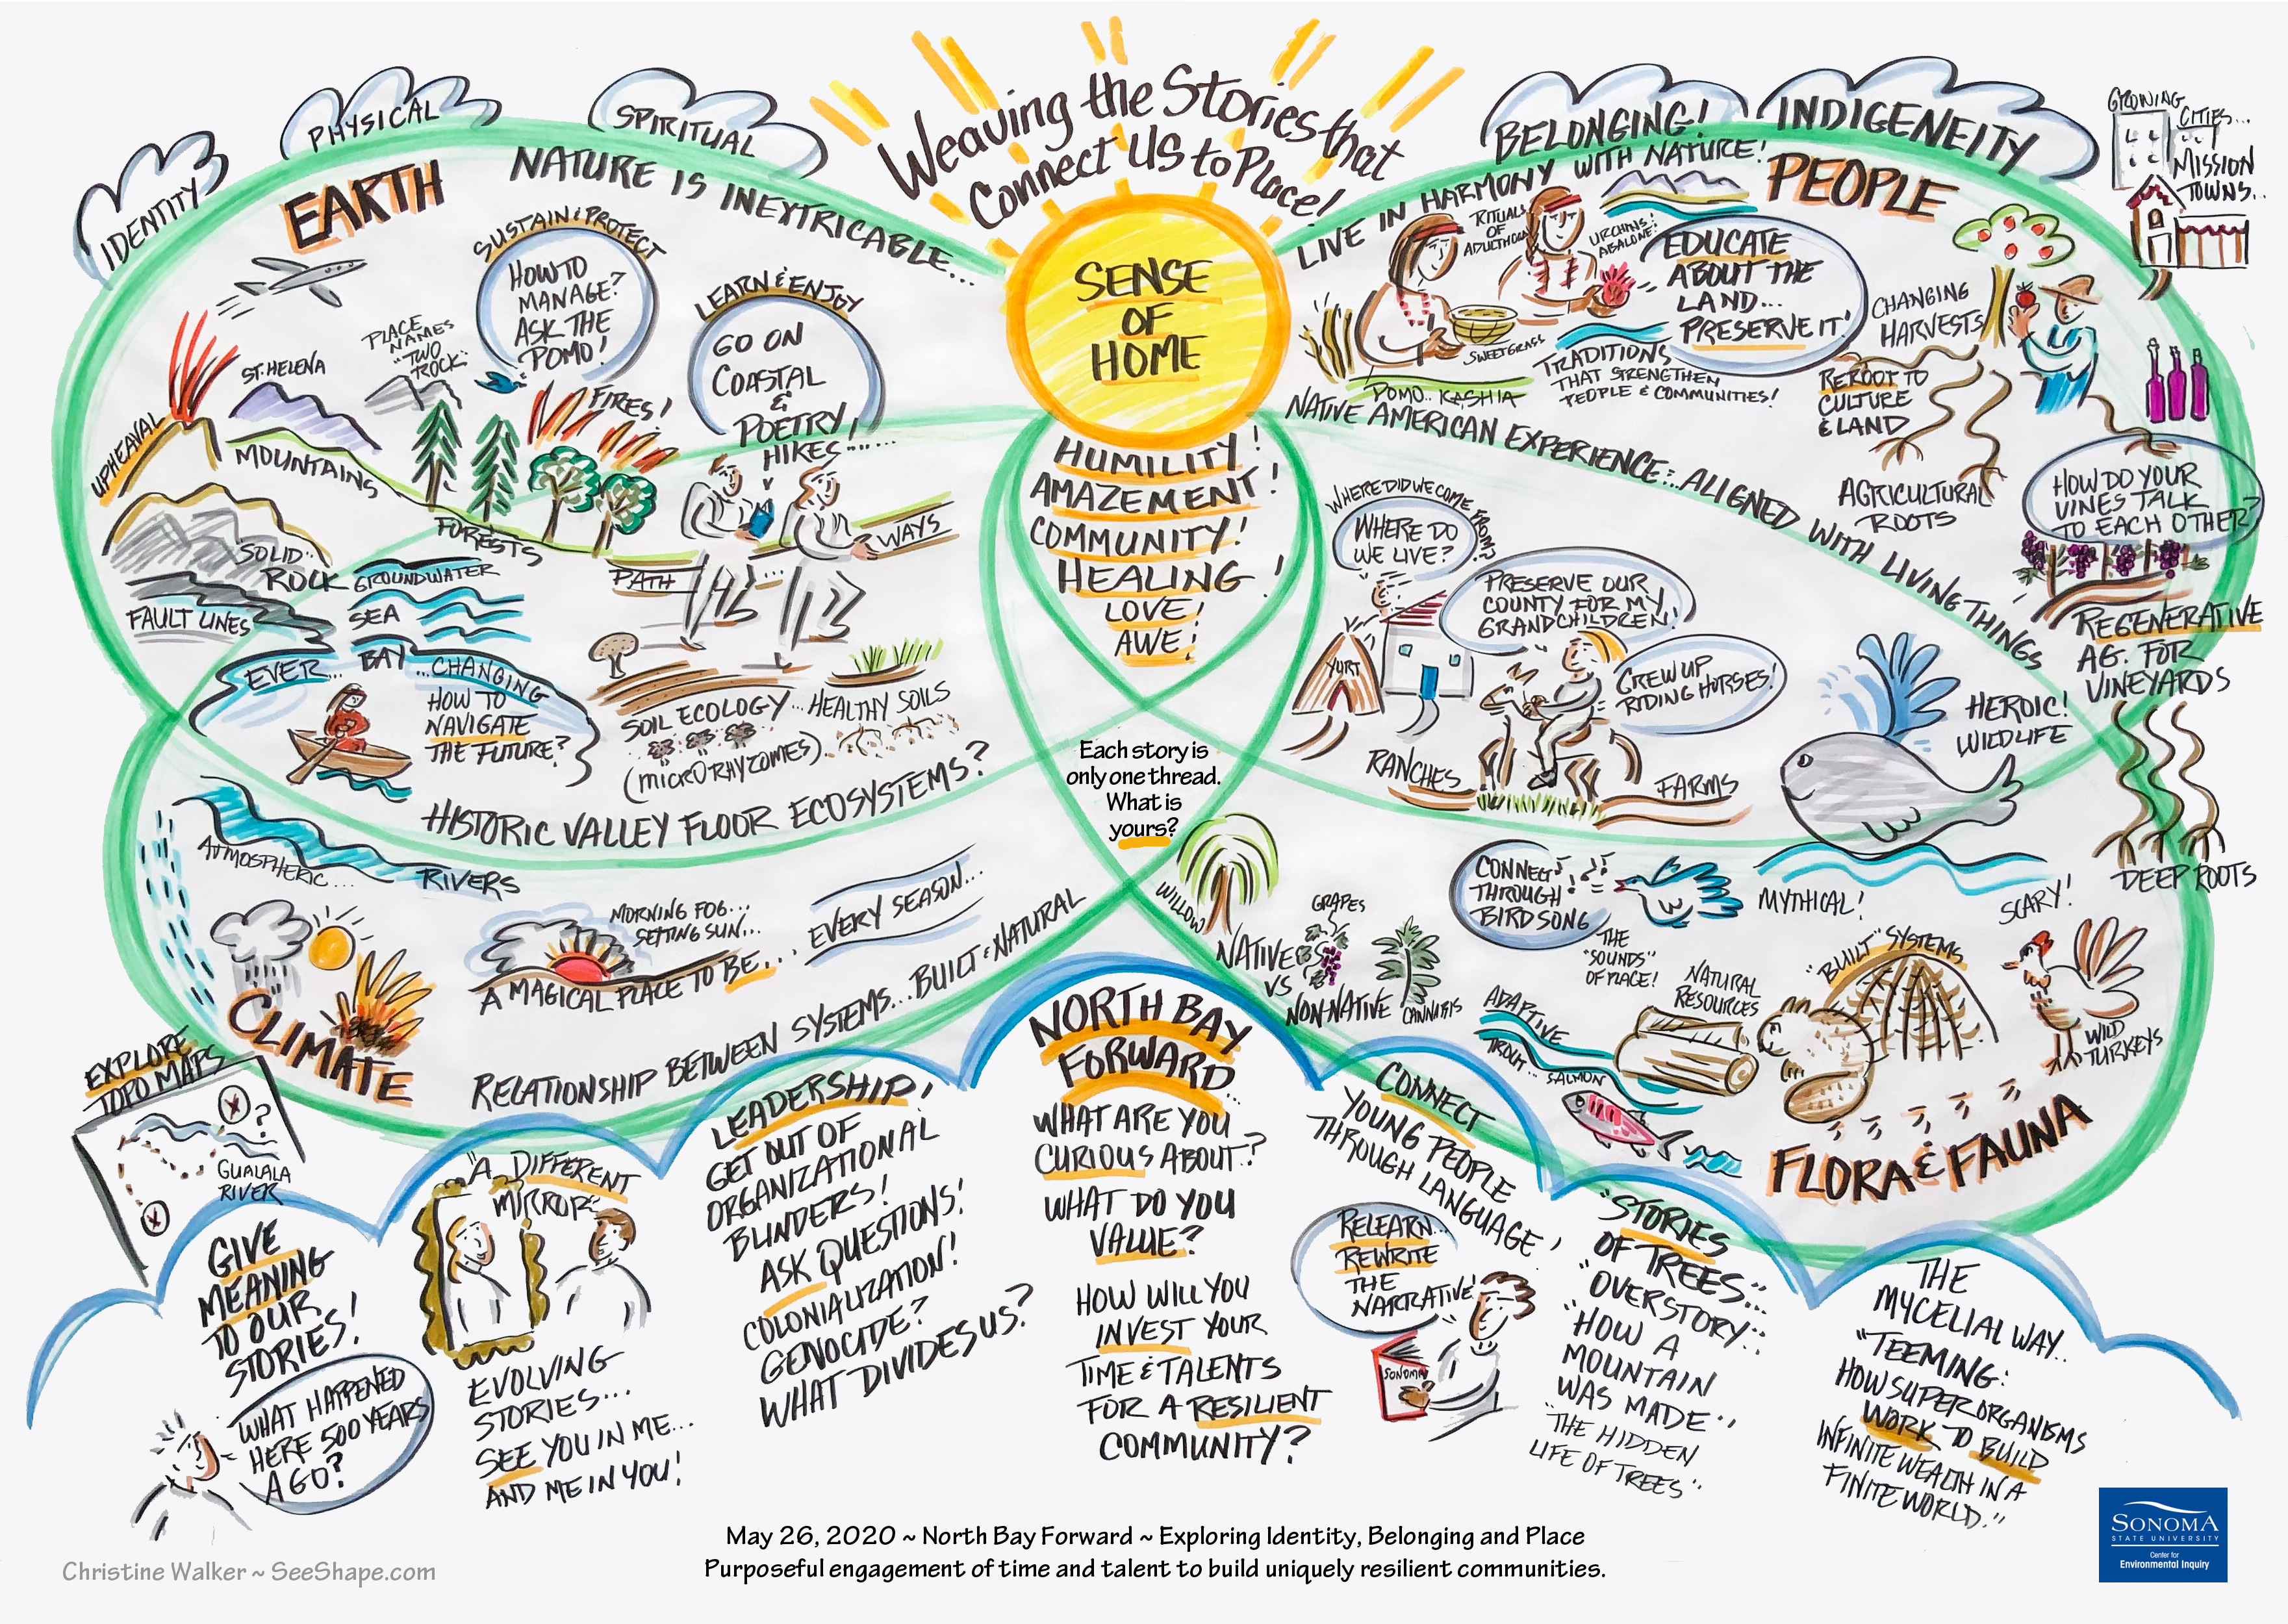 Weaving the Stories that
Connect Us to Place!
IDENTITY
PHYSICAL
SPIRITUAL
BELONGING!
INDIGENEITY
GROWING
CITIES...
MISSION
TOWNS...
EARTH
NATURE IS INEXTRICABLE...
SUSTAIN & PROTECT
HOW TO
MANAGE?
ASK THE
POMO!
LEARN & ENJOY
GO ON
COASTAL
&
POETRY!
HIKES......
PLACE
NAMES
"TWO
ROCK"
ST. HELENA
UPHEAVAL
MOUNTAINS
FIRES!
FORESTS
"SOLID"
ROCK
GROUNDWATER
SEA
FAULT LINES
PATH
...
WAYS
EVER...
BAY
...CHANGING
HOW TO
NAVIGATE
THE FUTURE?
SOIL ECOLOGY...
(MICRORHYZOMES)
HEALTHY SOILS
HISTORIC VALLEY FLOOR ECOSYSTEMS?
SENSE
OF
HOME
HUMILITY!
AMAZEMENT!
COMMUNITY!
HEALING!
LOVE!
AWE!
Each story is
only one thread.
What is
yours?
LIVE IN HARMONY WITH NATURE!
PEOPLE
RITUALS
OF
ADULTHOOD
URCHINS!
ABALONE!
EDUCATE
ABOUT THE
LAND...
PRESERVE IT!
SWEETGRASS
POMO.. KASHIA
TRADITIONS
THAT STRENGTHEN
PEOPLE & COMMUNITIES!
CHANGING
HARVESTS
REROOT TO
CULTURE
& LAND
AGRICULTURAL
ROOTS
NATIVE AMERICAN EXPERIENCE... ALIGNED WITH LIVING THINGS
HOW DO YOUR
VINES TALK
TO EACH OTHER?
REGENERATIVE
AG. FOR
VINEYARDS
WHERE DID WE COME FROM?
WHERE DO
WE LIVE?
PRESERVE OUR
COUNTY FOR MY
GRANDCHILDREN!
GREW UP
RIDING HORSES!
YURT
RANCHES
FARMS
HEROIC!
WILDLIFE
MYTHICAL!
DEEP ROOTS
ATMOSPHERIC...
RIVERS
CLIMATE
MORNING FOG...
SETTING SUN...
A MAGICAL PLACE TO BE...
EVERY SEASON...
RELATIONSHIP BETWEEN SYSTEMS... BUILT & NATURAL
WILLOW
GRAPES
NATIVE
VS
NON-NATIVE
CANNABIS
CONNECT
THROUGH
BIRDSONG
THE
"SOUNDS"
OF PLACE!
ADAPTIVE
TROUT...
SALMON
NATURAL
RESOURCES
"BUILT" SYSTEMS
SCARY!
WILD
TURKEYS
FLORA & FAUNA
EXPLORE
TOPO MAPS
X
?
GUALALA
RIVER
X
GIVE
MEANING
TO OUR
STORIES!
WHAT HAPPENED
HERE 500 YEARS
AGO?
"A DIFFERENT
MIRROR"
EVOLVING
STORIES...
SEE YOU IN ME...
AND ME IN YOU!
LEADERSHIP!
GET OUT OF
ORGANIZATIONAL
BLINDERS!
ASK QUESTIONS!
COLONIALIZATION!
GENOCIDE?
WHAT DIVIDES US?
NORTH BAY
FORWARD...
WHAT ARE YOU
CURIOUS ABOUT?
WHAT DO YOU
VALUE?
HOW WILL YOU
INVEST YOUR
TIME & TALENTS
FOR A RESILIENT
COMMUNITY?
CONNECT
YOUNG PEOPLE
THROUGH LANGUAGE!
RELEARN...
REWRITE
THE
NARRATIVE!
SONOMA
"STORIES
OF TREES"...
"OVERSTORY"...
"HOW A
MOUNTAIN
WAS MADE",
"THE HIDDEN
LIFE OF TREES"
THE
MYCELIAL WAY...
"TEEMING:
HOW SUPERORGANISMS
WORK TO BUILD
INFINITE WEALTH IN A
FINITE WORLD."
May 26, 2020 ~ North Bay Forward ~ Exploring Identity, Belonging and Place
Purposeful engagement of time and talent to build uniquely resilient communities.
Christine Walker ~ SeeShape.com
SONOMA
STATE UNIVERSITY
Center for
Environmental Inquiry